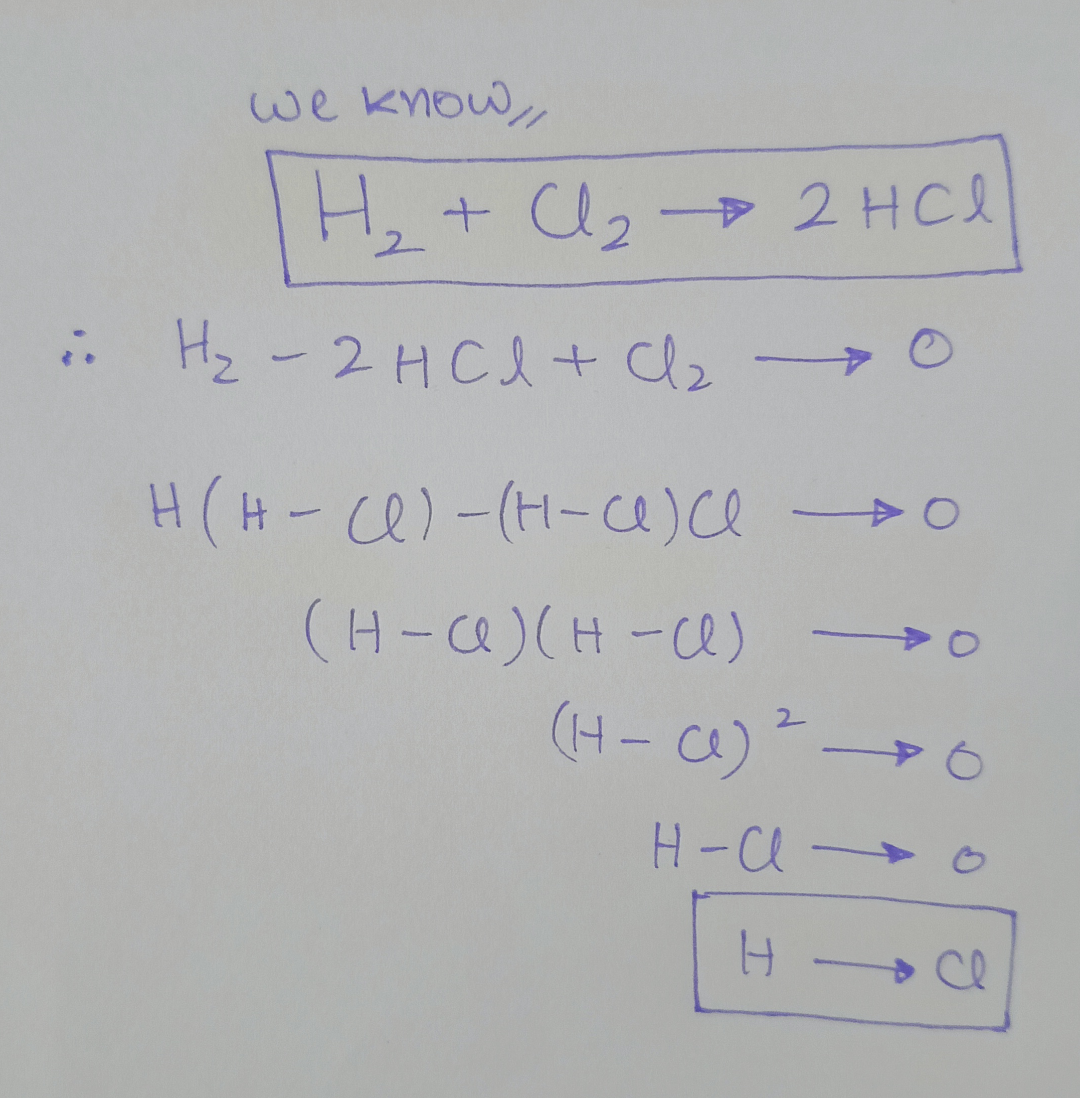 we know,,
H₂ + Cl₂ → 2HCl
∴ H₂ - 2HCl + Cl₂ → 0
H(H - Cl) - (H - Cl)Cl → 0
(H - Cl)(H - Cl) → 0
(H - Cl)² → 0
H - Cl → 0
H → Cl